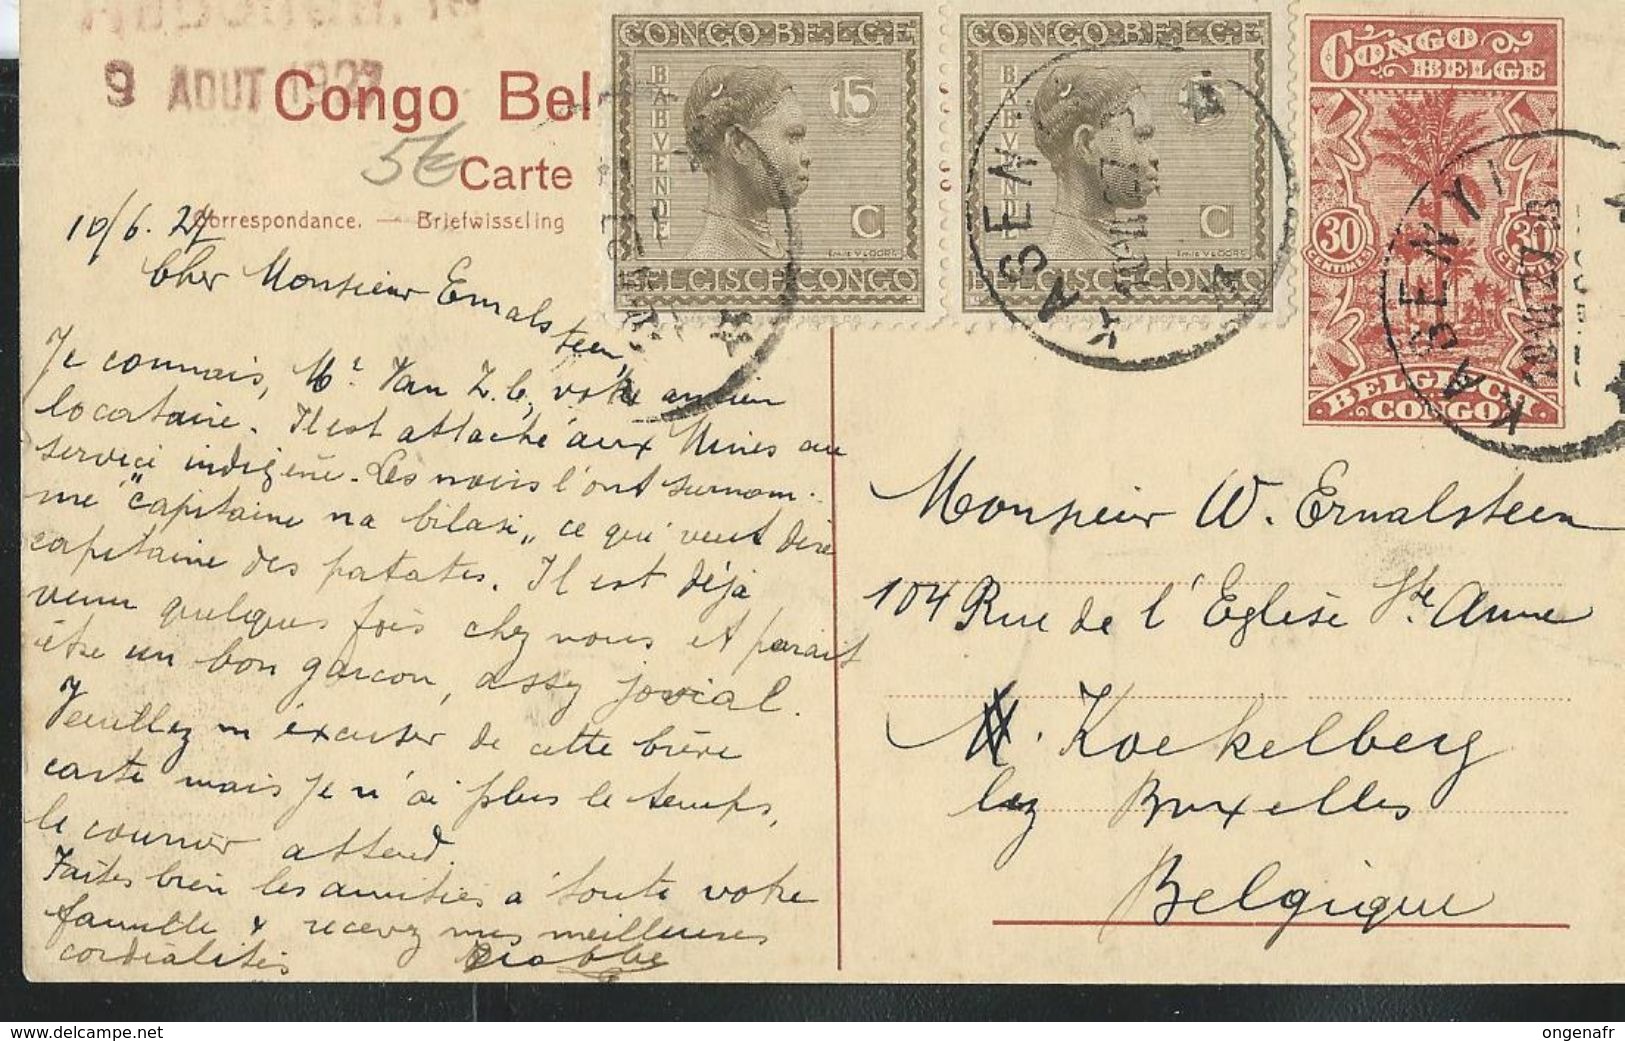 9 AOUT 1927
Congo Bel
5€
Carte
Correspondance. — Briefwisseling
10/6.27
Cher Monsieur Ernalsteen,
Je connais, Mr. Van Z.C, votre ancien
locataire. Il est attaché aux Mines au
service indigène. Les noirs l'ont surnom-
mé "capitaine na bilasi" ce qui veut dire
capitaine des patates. Il est déjà
venu quelques fois chez nous et parait
être un bon garçon, assez jovial.
Veuillez m'excuser de cette brève
carte mais je n'ai plus le temps,
le courrier attend.
Faites bien les amitiés à toute votre
famille & recevez mes meilleures
cordialités
CONGO BELGE
BABVENDE
15
C
EMILE VLOORS
BELGISCH CONGO
CONGO BELGE
BABVENDE
15
C
EMILE VLOORS
BELGISCH CONGO
KASENYI
CONGO
BELGE
30 30
CENTIMES
BELGISCH
CONGO
KASENYI
Monsieur W. Ernalsteen
104 Rue de l'Eglise Ste. Anne
Koekelberg
lez Bruxelles
Belgique
www.delcampe.net
ongenafr